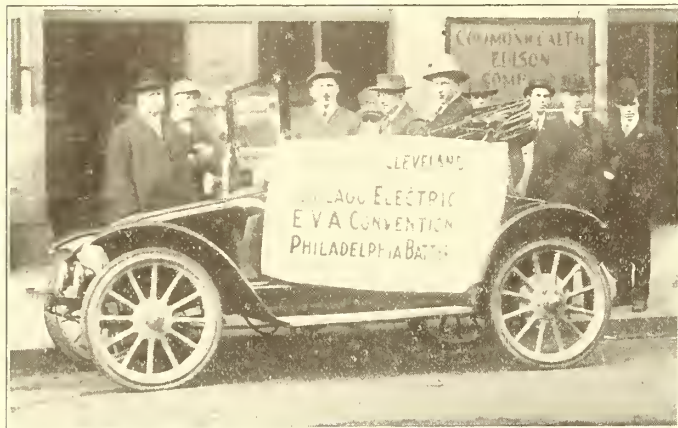 COMMONWEALTH
EDISON
COMPANY
CLEVELAND
ELECTRIC
E V A CONVENTION
PHILADELPHIA